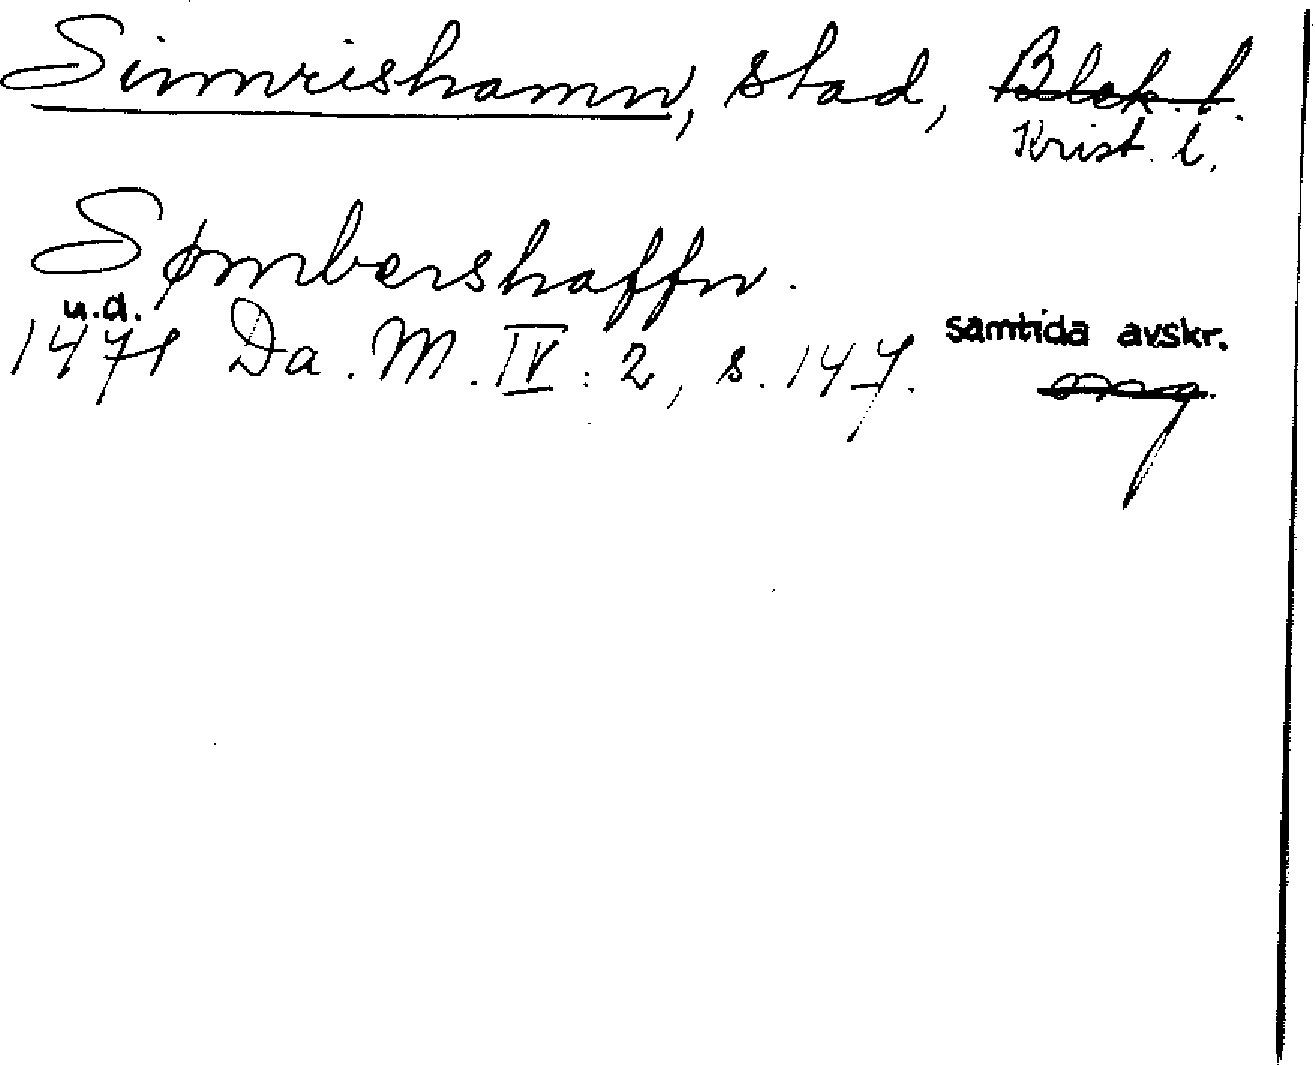 Simrishamn, stad, Blek. l.
Krist. l.
Sømbershaffn.
u.d.
1471 Da. M. IV: 2, s. 147. samtida avskr.